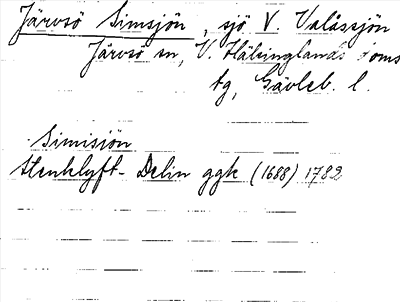 Järvsö Simsjön, sjö V. Valåssjön
Järvsö sn, V. Hälsinglands doms
tg, Gävleb. l.
Simisjön
Stenklyft-Delin ggk (1688) 1782